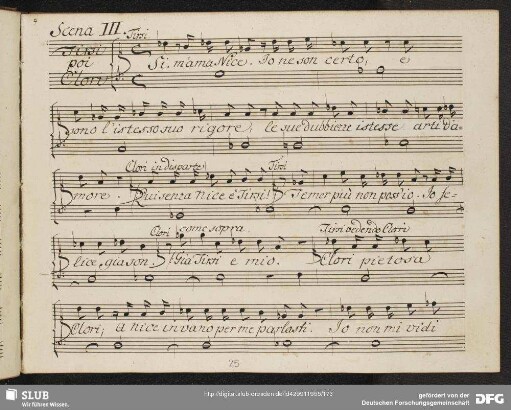 Scena III. Tirsi
Tirsi
poi
Clori
Si: m'ama Nice. Io ne son certo; e
sono l'istesso suo rigore, le sue dubbiezze istesse arti d'a-
Clori in disparte Tirsi
more. Qui senza Nice è Tirsi! Temer più non poss'io. Io fe-
Clori come sopra Tirsi vedendo Clori
lice già son. Già Tirsi e mio. Clori pietosa
Clori; a Nice in vano per me parlasti. Io non mi vidi
75
SLUB
Wir führen Wissen.
gefördert von der
Deutschen Forschungsgemeinschaft
DFG